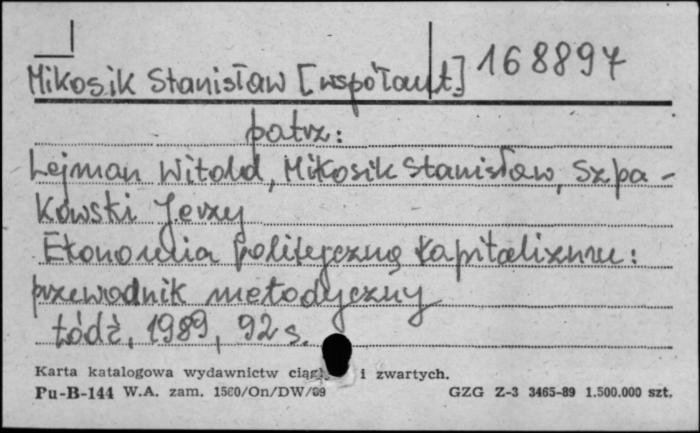 Mikosik Stanisław [współaut.] 168897
patrz:
Lejman Witold, Mikosik Stanisław, Szpa-
kowski Jerzy
Ekonomia polityczna kapitalizmu:
przewodnik metodyczny
Łódź, 1989, 92 s.
Karta katalogowa wydawnictw i zwartych.
Pu-B-144 W.A. zam. 1560/On/DW/89 GZG Z-3 3465-89 1.500.000 szt.